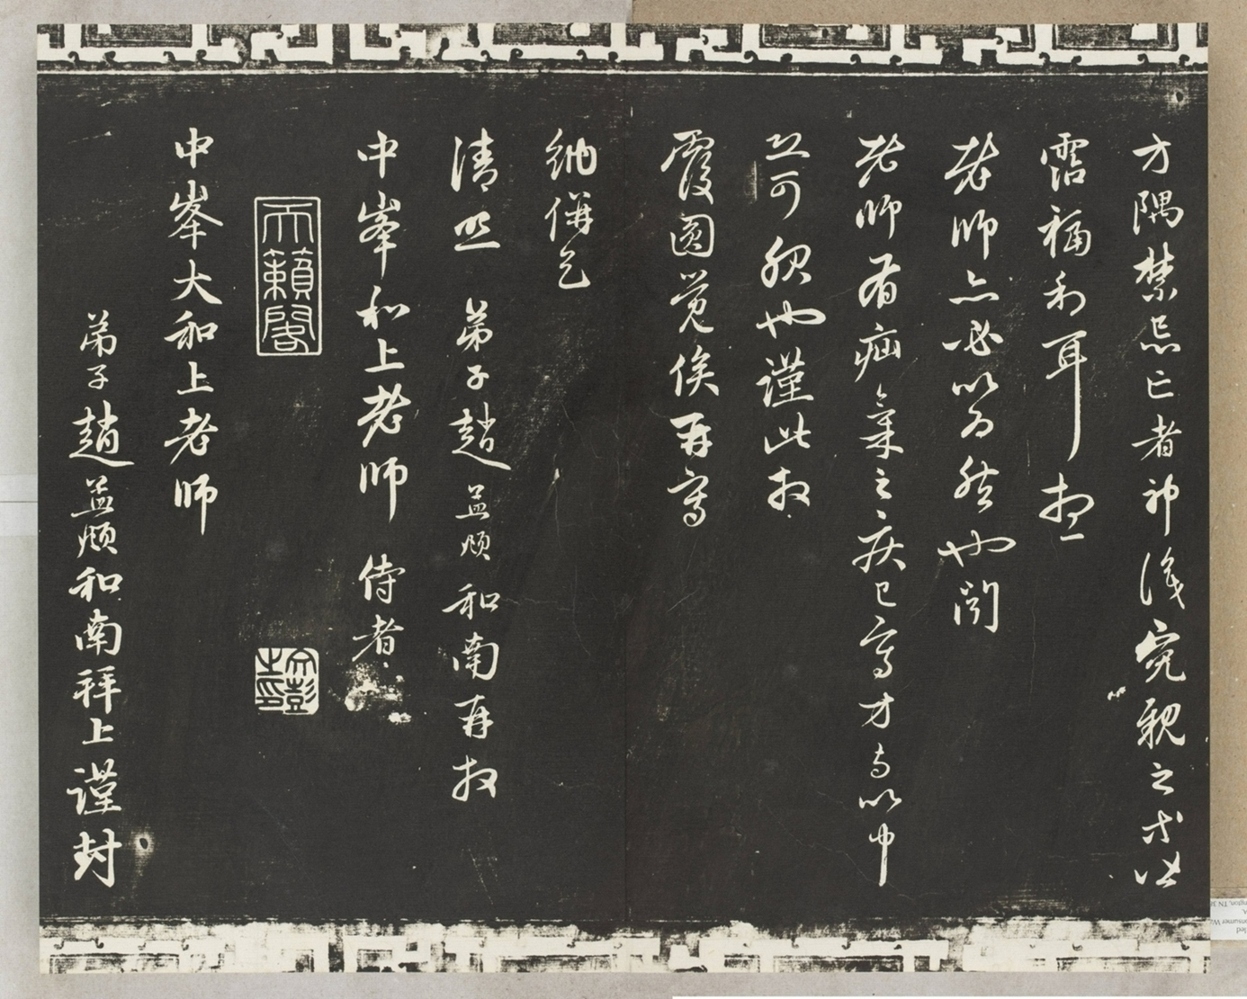 方隅禁忌亡者神識寃親之等皆
霑福利耳想
老師亦必以為然也聞
老師有疝氣之疾已寫方與以中
上可服也謹此拜
覆圓覺俟再寫
納併乞
清照 弟子趙孟頫和南再拜
中峯和上老師 侍者
天籟閣
中峯大和上老師
弟子趙孟頫和南拜上謹封